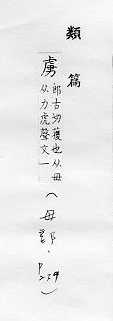 類篇
虜
郎古切獲也从毌
从力虍聲文一
(毌部·P.239)